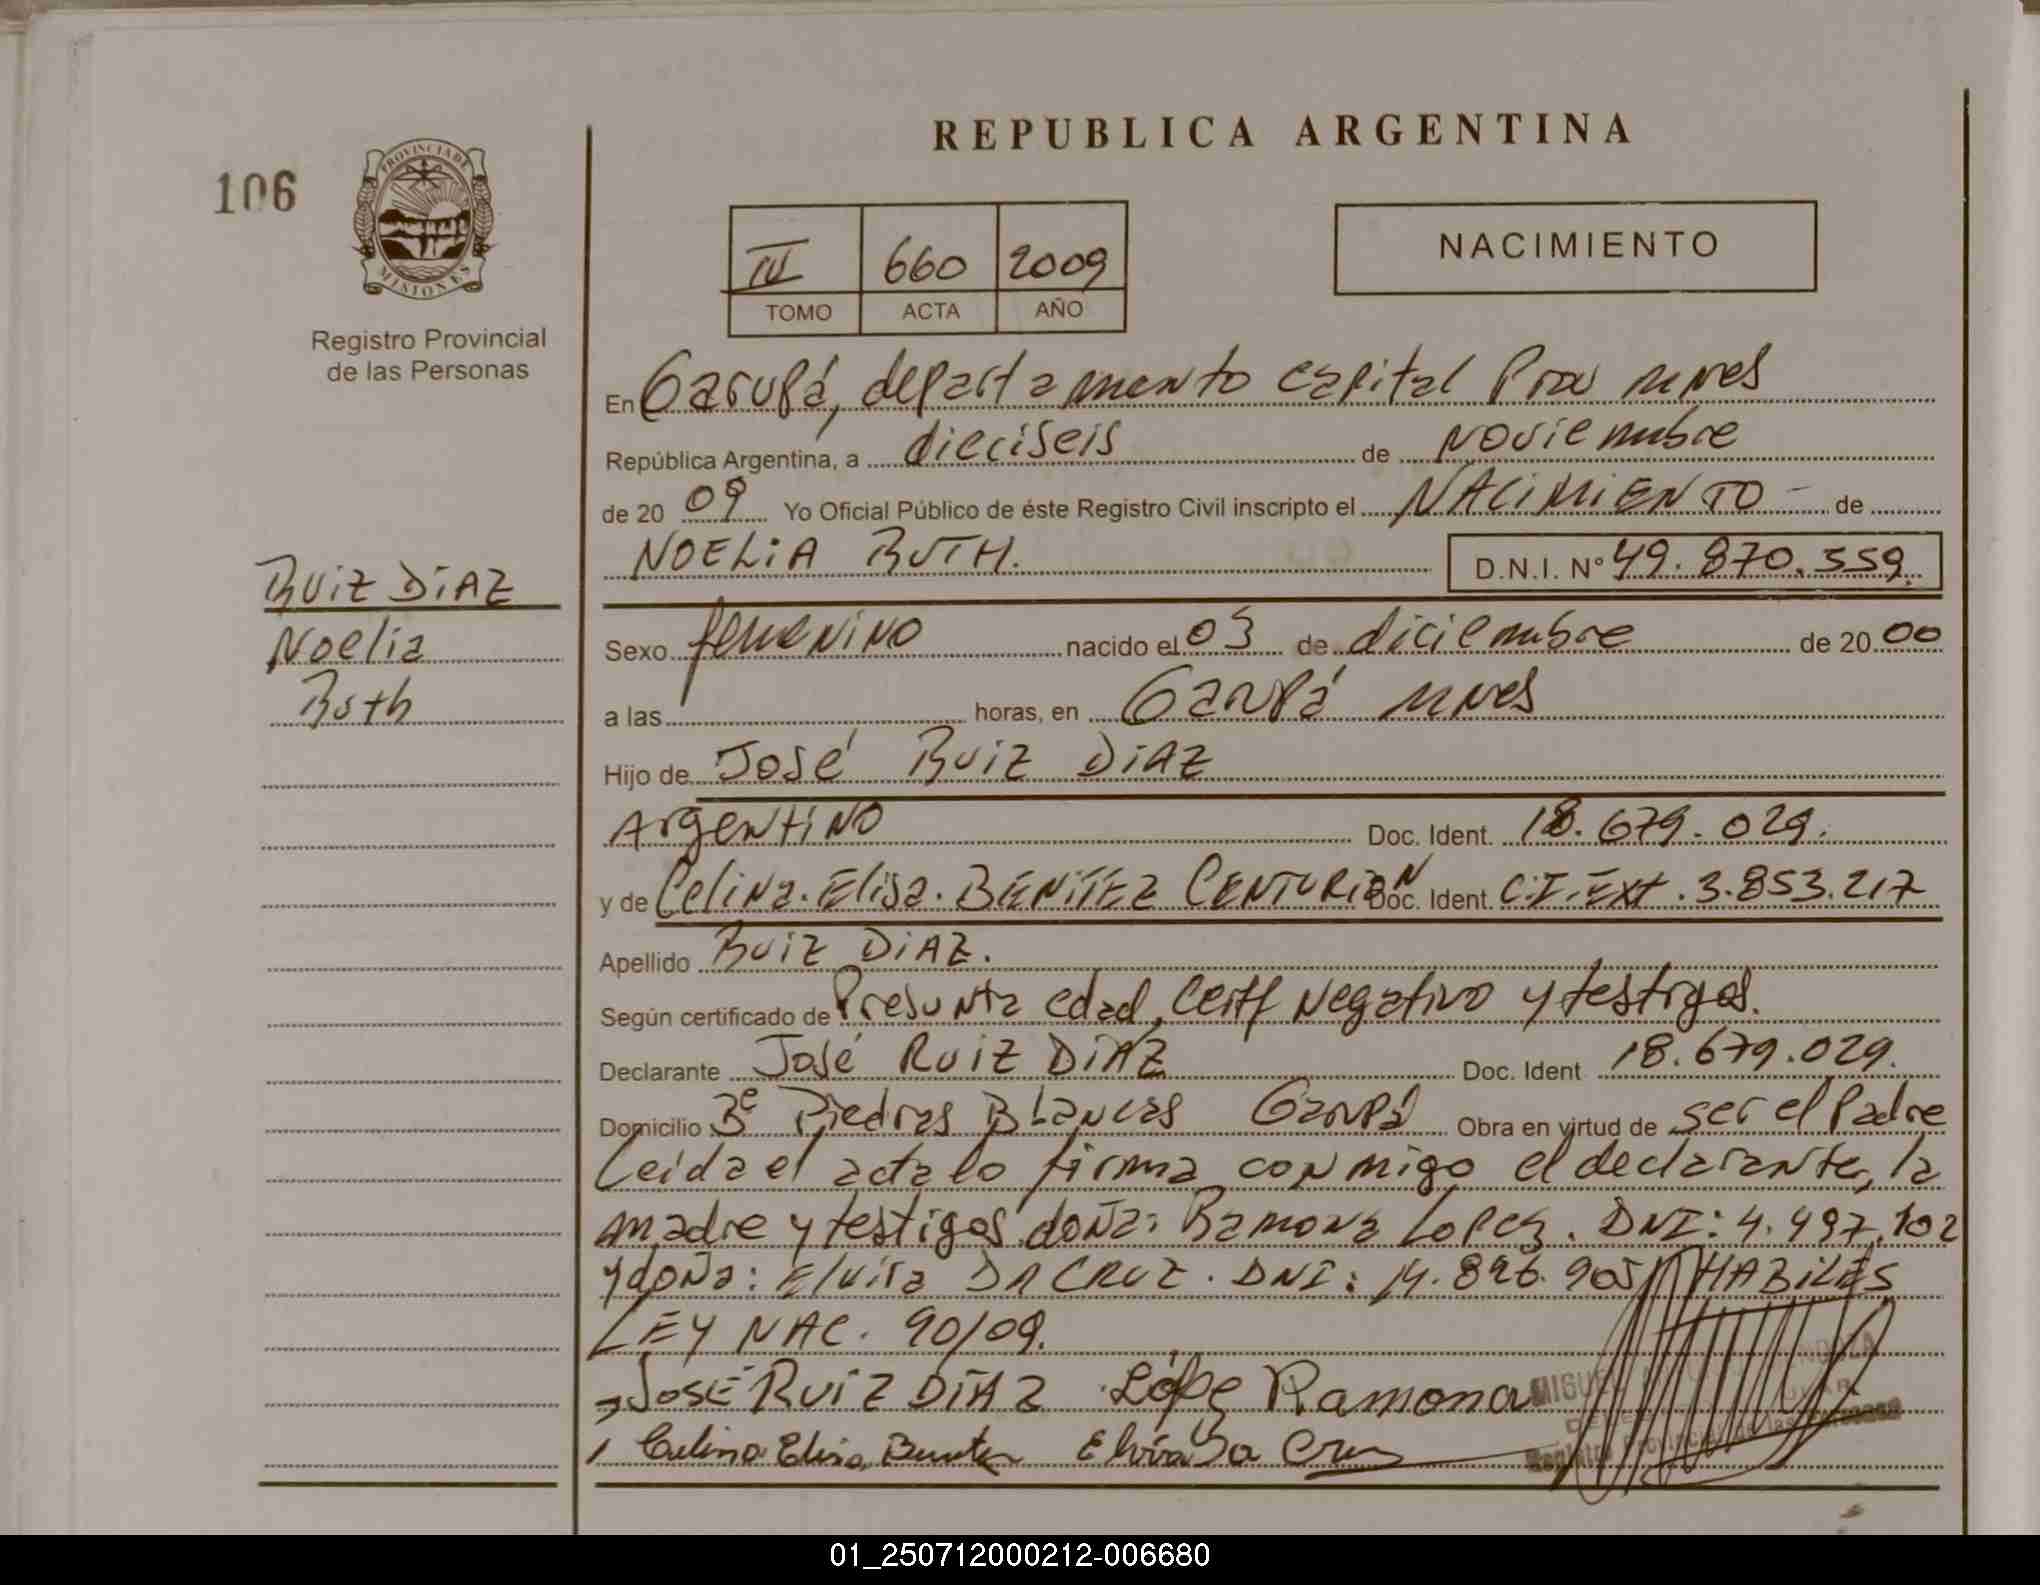 REPUBLICA ARGENTINA
106
PROVINCIA DE
MISIONES
Registro Provincial
de las Personas
III 660 2009
TOMO ACTA AÑO
NACIMIENTO
En Garupá, departamento capital Prov mnes
República Argentina, a dieciseis de noviembre
de 20 09 Yo Oficial Público de éste Registro Civil inscripto el NACIMIENTO - de
NOELIA RUTH. D.N.I. N° 49.870.559.
RUIZ DIAZ
Noelia
Ruth
Sexo femenino nacido el 03 de diciembre de 20 00
a las horas, en Garupá mnes
Hijo de José Ruiz DIAZ
Argentino Doc. Ident. 18.679.029.
y de Celina. Elisa. BENITEZ CENTURION Doc. Ident. C.I. Ext. 3.853.217
Apellido RUIZ DIAZ.
Según certificado de Presunta edad, Certf Negativo y testigos.
Declarante José RUIZ DIAZ Doc. Ident 18.679.029.
Domicilio Bº Piedras Blancas Garupá Obra en virtud de ser el Padre
Leida el acta lo firma conmigo el declarante, la
madre y testigos doña: Ramona Lopez. DNI: 4.497.102
y doña: Elvira DA CRUZ. DNI: 14.896.905 HABILES
LEY NAC. 90/09.
JOSÉ RUIZ DIAZ Lópe Ramona
Celina Elisa Benitez Elvira Da Cruz
MIGUEL
Registro Provincial de las Personas
01_250712000212-006680